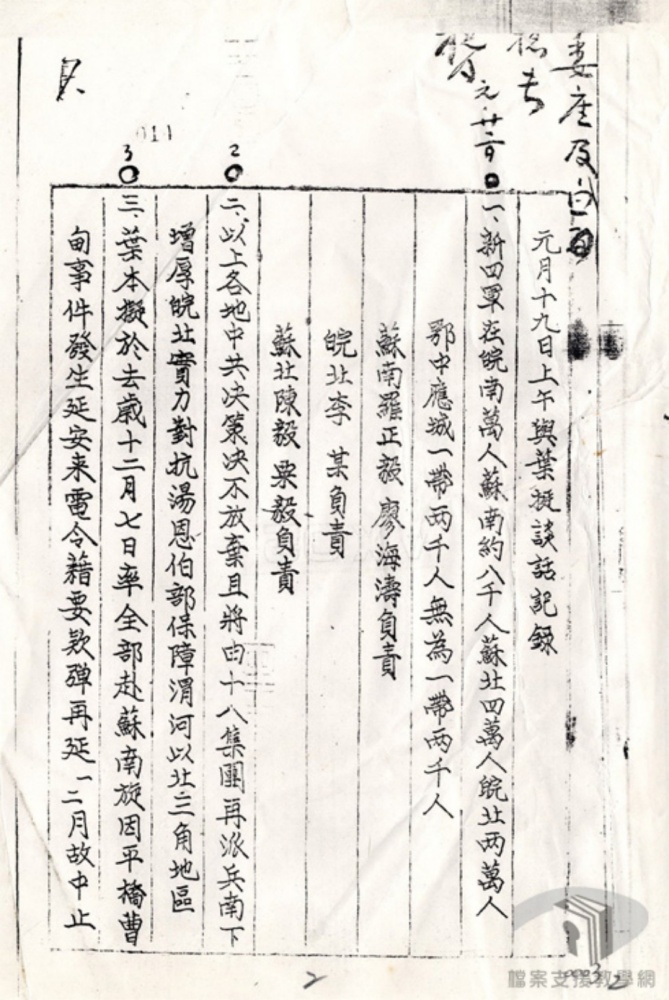 委座及白
元·廿三
011
元月十九日上午與葉挺談話記録
一、新四軍在皖南萬人蘇南約八千人蘇北四萬人皖北兩萬人
鄂中應城一帶兩千人無為一帶兩千人
蘇南羅正毅 廖海濤負責
皖北李 某負責
蘇北陳毅 粟毅負責
2
二、以上各地中共决策决不放棄且將由十八集團再派兵南下
增厚皖北實力對抗湯恩伯部保障渭河以北三角地區
3
三、葉本擬於去歲十二月七日率全部赴蘇南旋因平橋曹
甸事件發生延安来電令藉要款彈再延一二月故中止
2
0003
2
檔案支援教學網